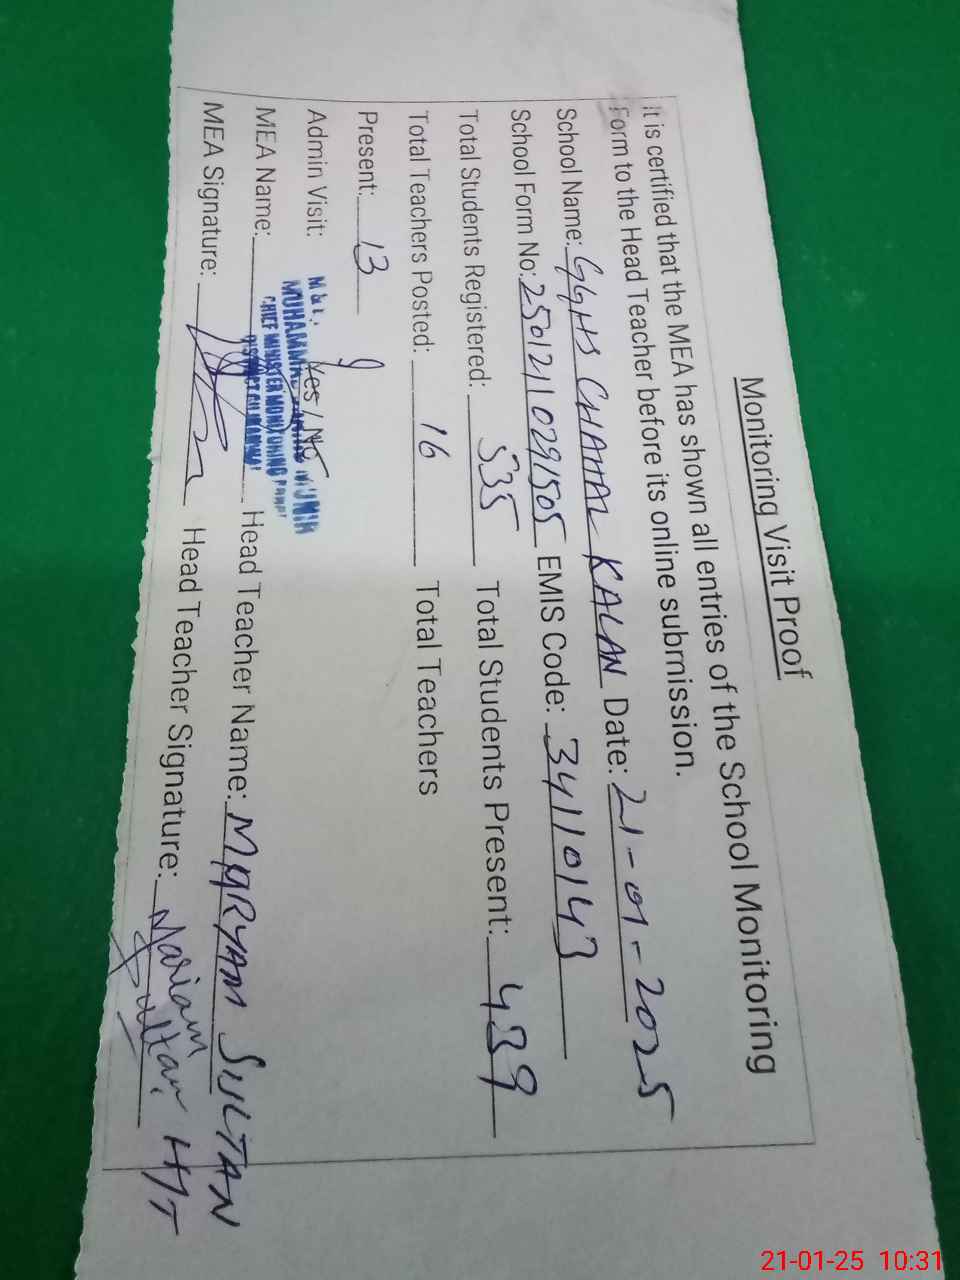 Monitoring Visit Proof
It is certified that the MEA has shown all entries of the School Monitoring
Form to the Head Teacher before its online submission.
School Name: GGHS CHAHAL KALAN Date: 21-01-2025
School Form No: 25012110291505 EMIS Code: 34110143
Total Students Registered: 535 Total Students Present: 439
Total Teachers Posted: 16 Total Teachers
Present: 13
Admin Visit: Yes / No
M & E,
MUHAMMAD MUNIR
CHIEF MINISTER MONITORING
DISTRICT
MEA Name: Head Teacher Name: MARYAM SULTAN
MEA Signature: Head Teacher Signature: Mariam Sultan H/T
21-01-25 10:31